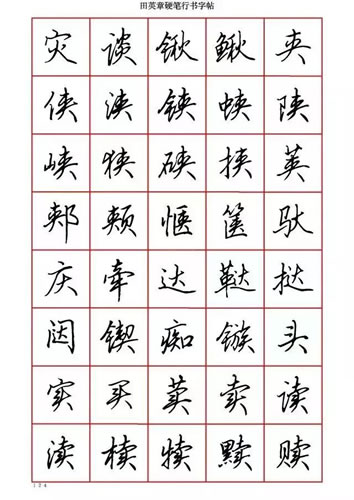 田英章硬笔行书字帖
灾 谈 锹 鳅 夹
侠 浃 铗 蛱 陕
峡 狭 硖 挟 荚
郏 颊 惬 箧 驮
庆 牵 达 鞑 挞
闼 锲 痴 镞 头
实 买 荬 卖 读
渎 椟 犊 黩 赎